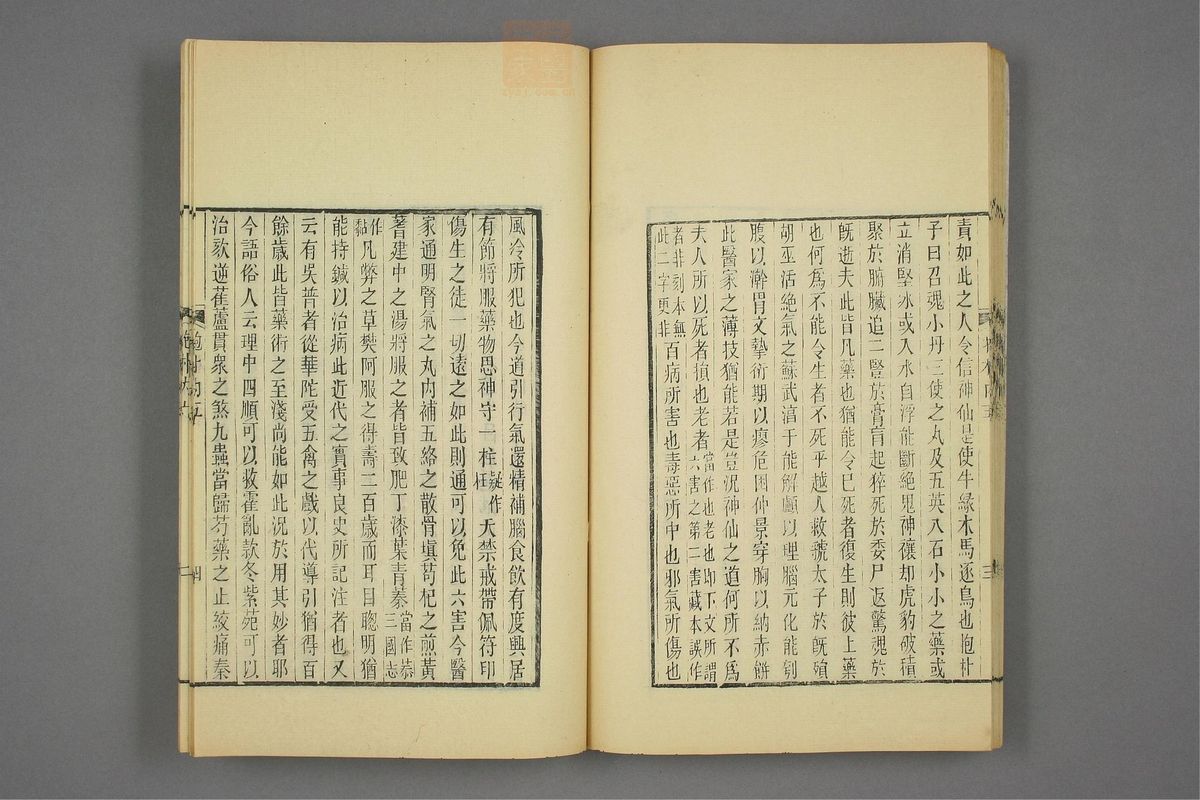 責如此之人令信神仙是使牛緣木馬逐鳥也抱朴
子曰召魂小丹三使之丸及五英八石小小之藥或
立消堅冰或入水自浮能斷絕鬼神禳却虎豹破積
聚於腑臟追二豎於膏肓起猝死於委尸返驚魂於
旣逝夫此皆凡藥也猶能令已死者復生則彼上藥
也何爲不能令生者不死乎越人救虢太子於旣殞
胡巫活絕氣之蘇武淳于能解顱以理腦元化能刳
腹以澣胃文摯衍期以瘳危困仲景穿胸以納赤餅
此醫家之薄技猶能若是豈況神仙之道何所不爲
夫人所以死者損也老者當作也老也卽下文所謂六害之第二害藏本誤作
者非刻本無此二字更非百病所害也毒惡所中也邪氣所傷也
風冷所犯也今道引行氣還精補腦食飲有度興居
有節將服藥物思神守一柱疑作枉天禁戒帶佩符印
傷生之徒一切遠之如此則通可以免此六害今醫
家通明腎氣之丸內補五絡之散骨塡苟杞之煎黃
蓍建中之湯將服之者皆致肥丁漆葉靑蓁當作蓁三國志
作黏凡弊之草樊阿服之得壽二百歲而耳目聰明猶
能持鍼以治病此近代之實事良史所記注者也又
云有吳普者從華陀受五禽之戲以代導引猶得百
餘歲此皆藥術之至淺尙能如此況於用其妙者耶
今語俗人云理中四順可以救霍亂款冬紫苑可以
治欬逆萑蘆貫衆之煞九蟲當歸芍藥之止絞痛秦